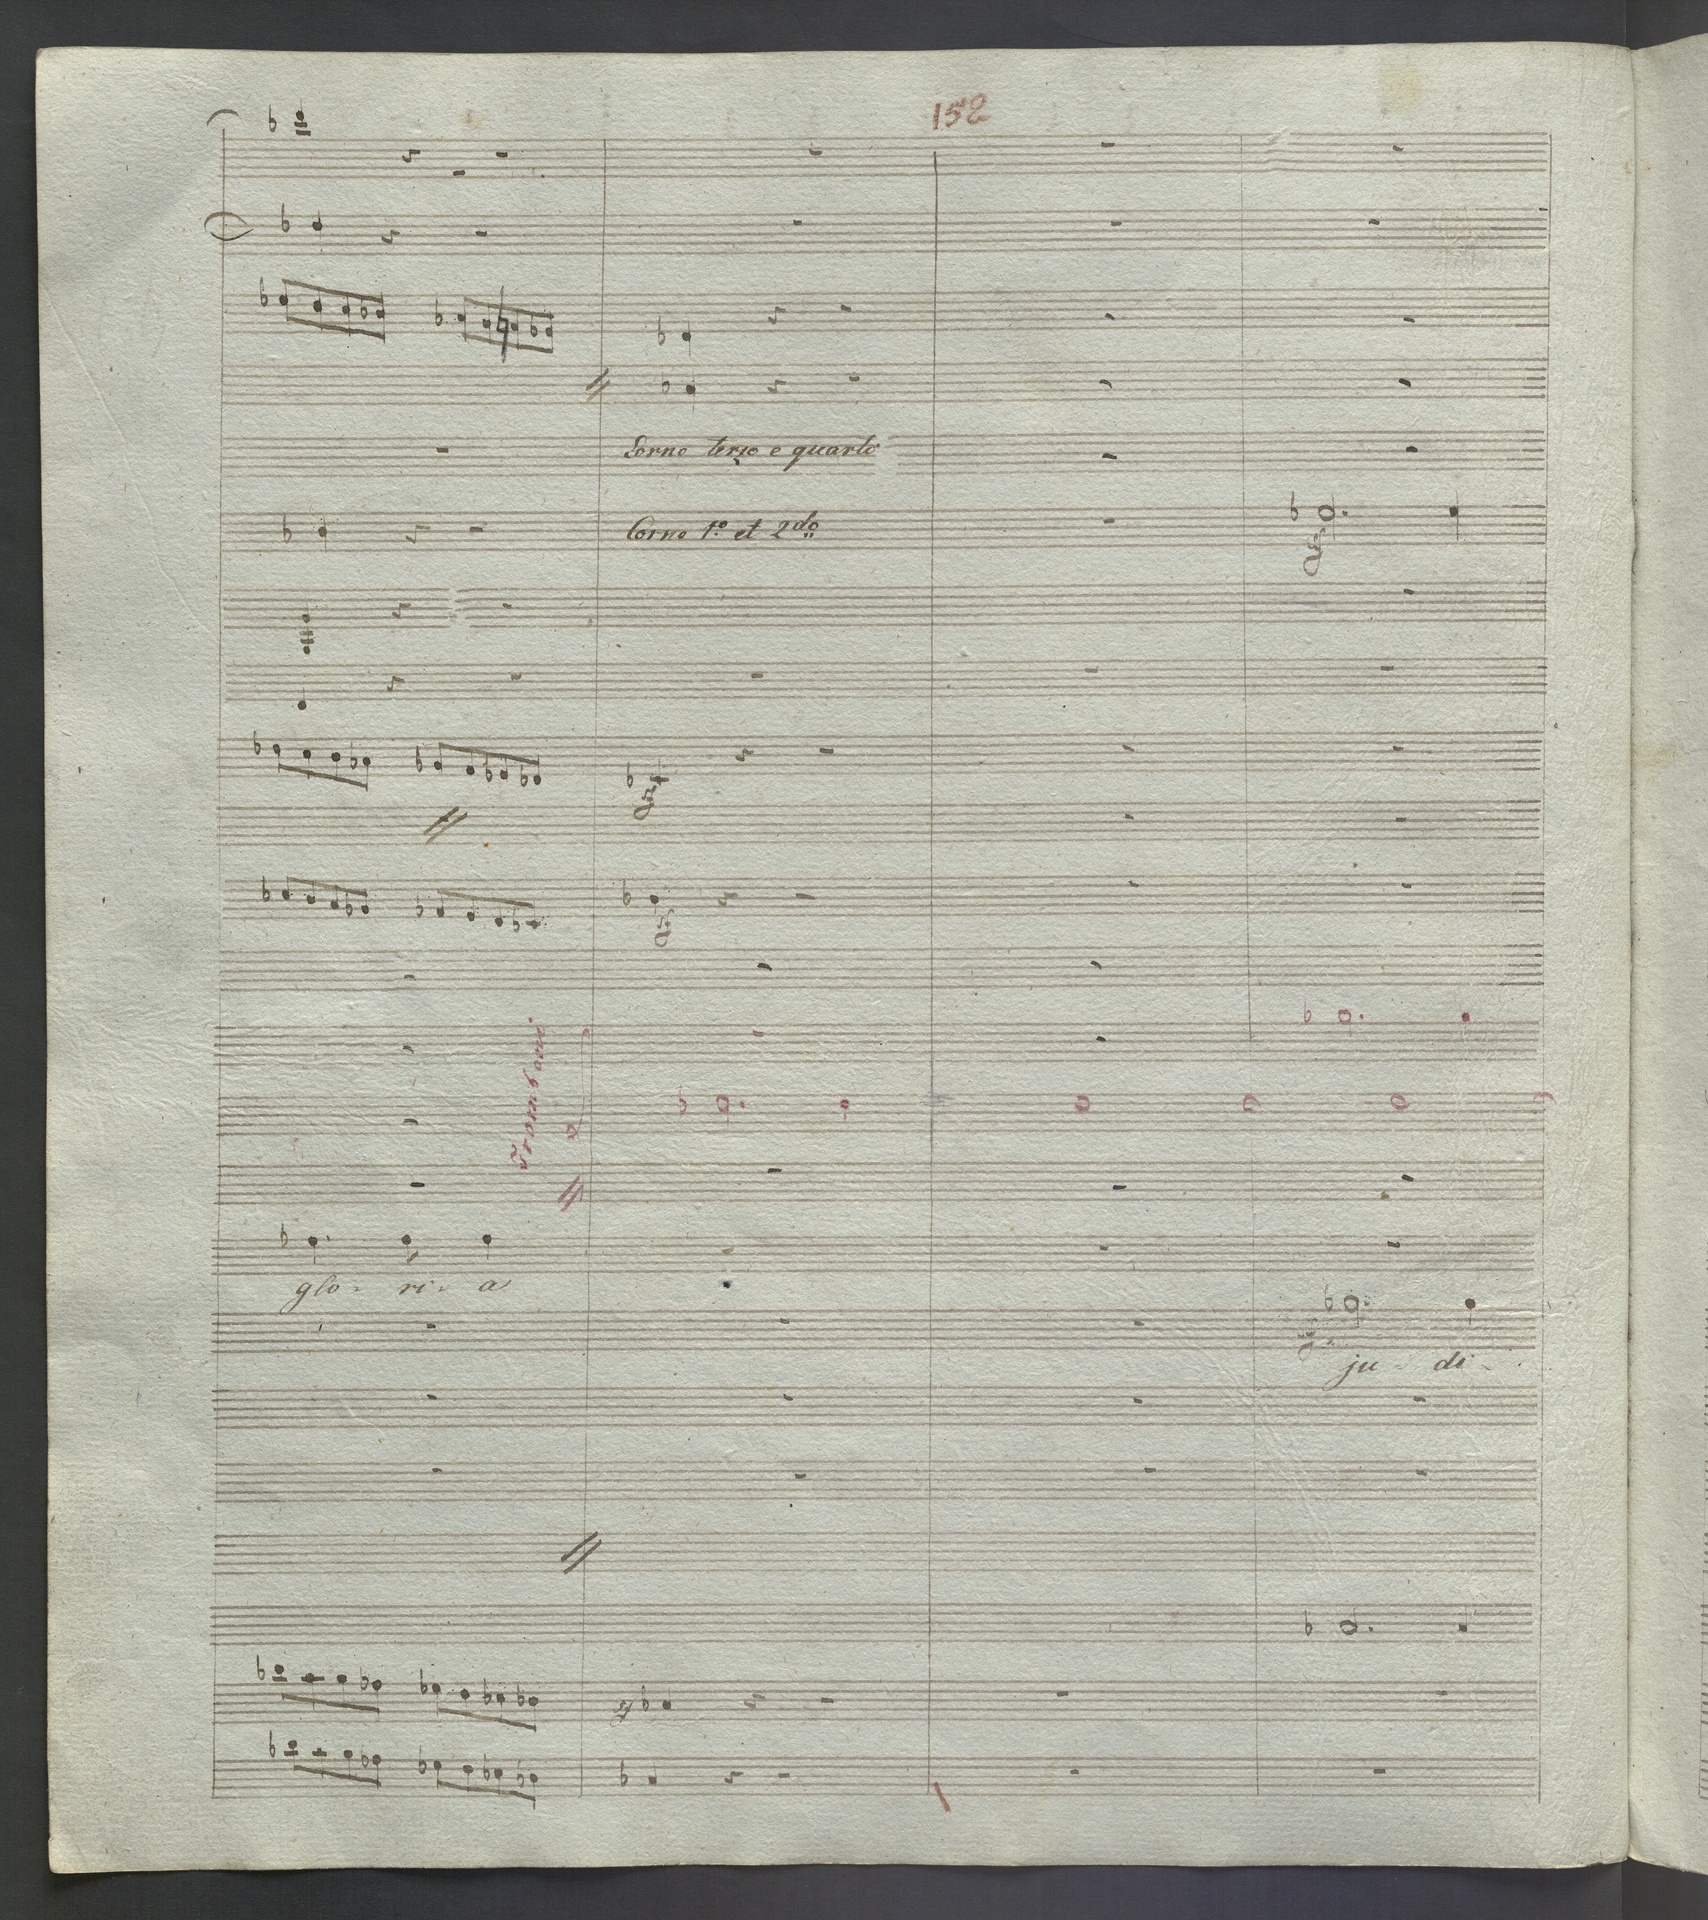 152
Corno terzo e quarto
Corno 1º et 2do
Tromboni
glo- ri- a
ju- di-